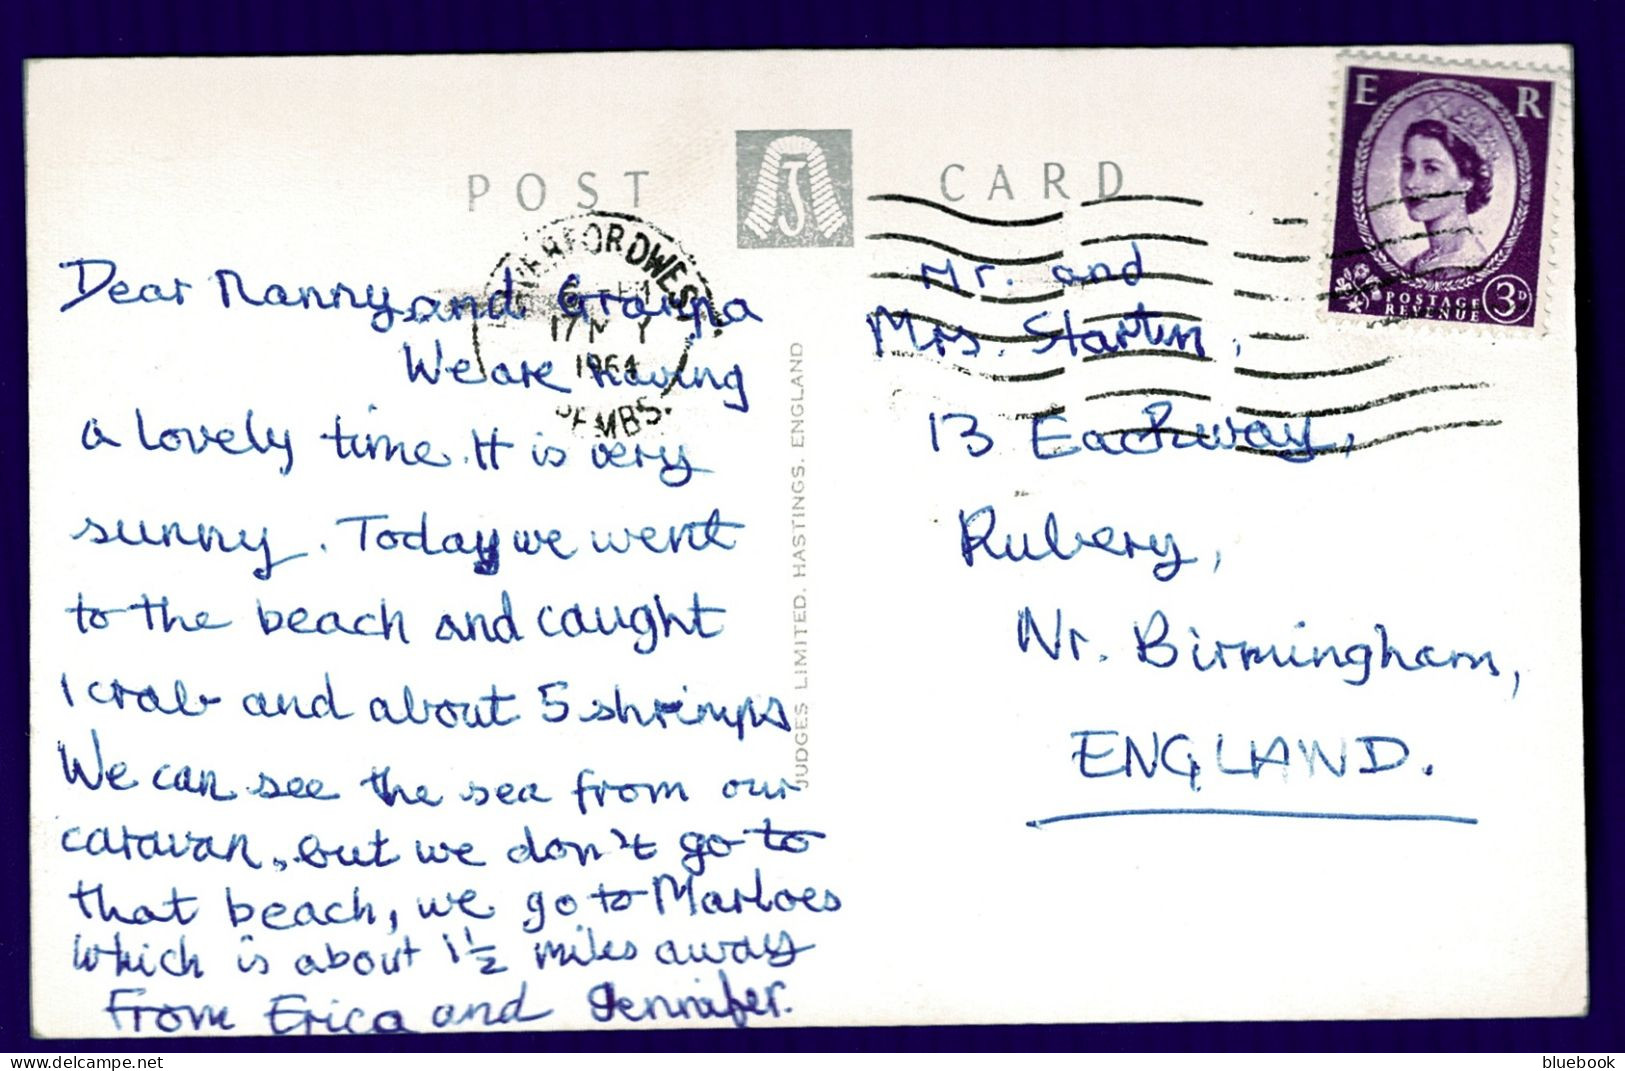 POST CARD
J
E R
POSTAGE
REVENUE
3D
HAVERFORDWEST
17 MY
1964
PEMBS.
Dear Nanny and Granpa
We are having
a lovely time. It is very
sunny. Today we went
to the beach and caught
1 crab and about 5 shrimps
We can see the sea from our
caravan, but we don't go to
that beach, we go to Marloes
which is about 1½ miles away
From Erica and Jennifer.
JUDGES LIMITED, HASTINGS, ENGLAND
Mr. and
Mrs. Startin,
13 Eachway,
Rubery,
Nr. Birmingham,
ENGLAND.
bluebook